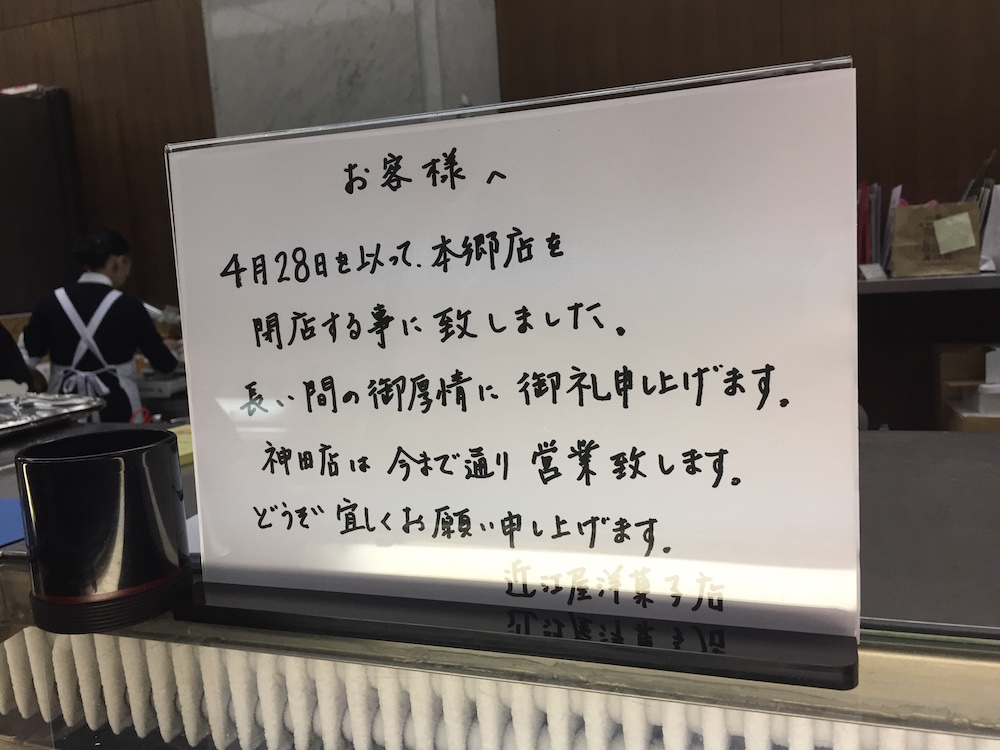 お客様へ
4月28日を以って、本郷店を
閉店する事に致しました。
長い間の御厚情に御礼申し上げます。
神田店は今まで通り営業致します。
どうぞ宜しくお願い申し上げます。
近江屋洋菓子店